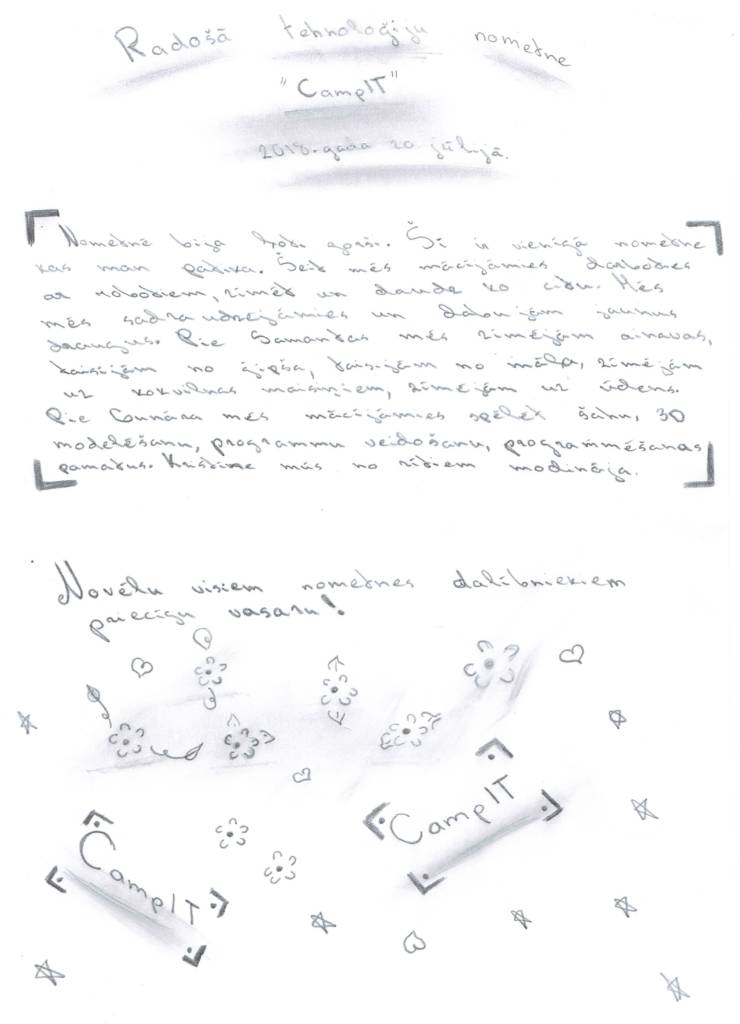 Radošā tehnoloģiju nometne
"CampIT"
2018.gada 20 jūlijā.
Nometnē bija ļoti forši. Šī ir vienīgā nometne
kas man patika. Šeit mēs mācījāmies darboties
ar robotiem, zīmēt un daudz ko citu. Mēs
mēs sadraudzējāmies un dabūjām jaunus
draugus. Pie Samantas mēs zīmējām ainavas,
taisījām no ģipša, taisījām no māla, zīmējām
uz kokvilnas maisiņiem, zīmējām uz ūdens.
Pie Gunāra mēs mācījāmies spēlēt šahu, 3D
modelēšanu, programmu veidošanu, programmēšanas
pamatus. Kristīne mūs no rītiem modināja.
Novēlu visiem nometnes dalībniekiem
priecīgu vasaru!
CampIT
CampIT